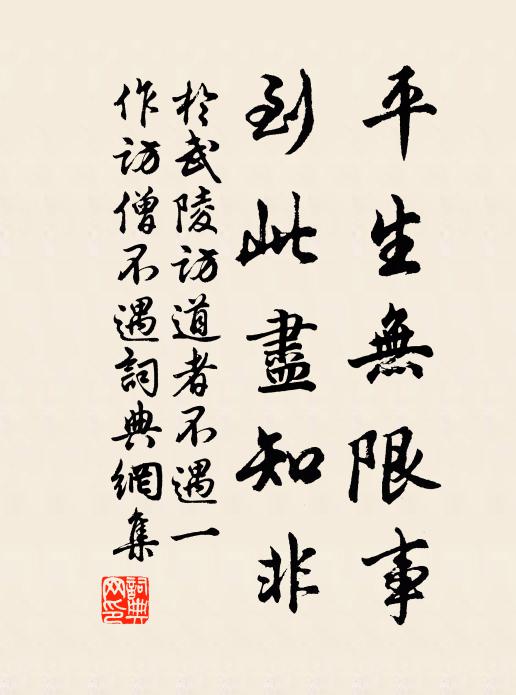 平生無限事
到此盡知非
於武陵訪道者不遇一
作訪僧不遇詞典網集
詞典網印